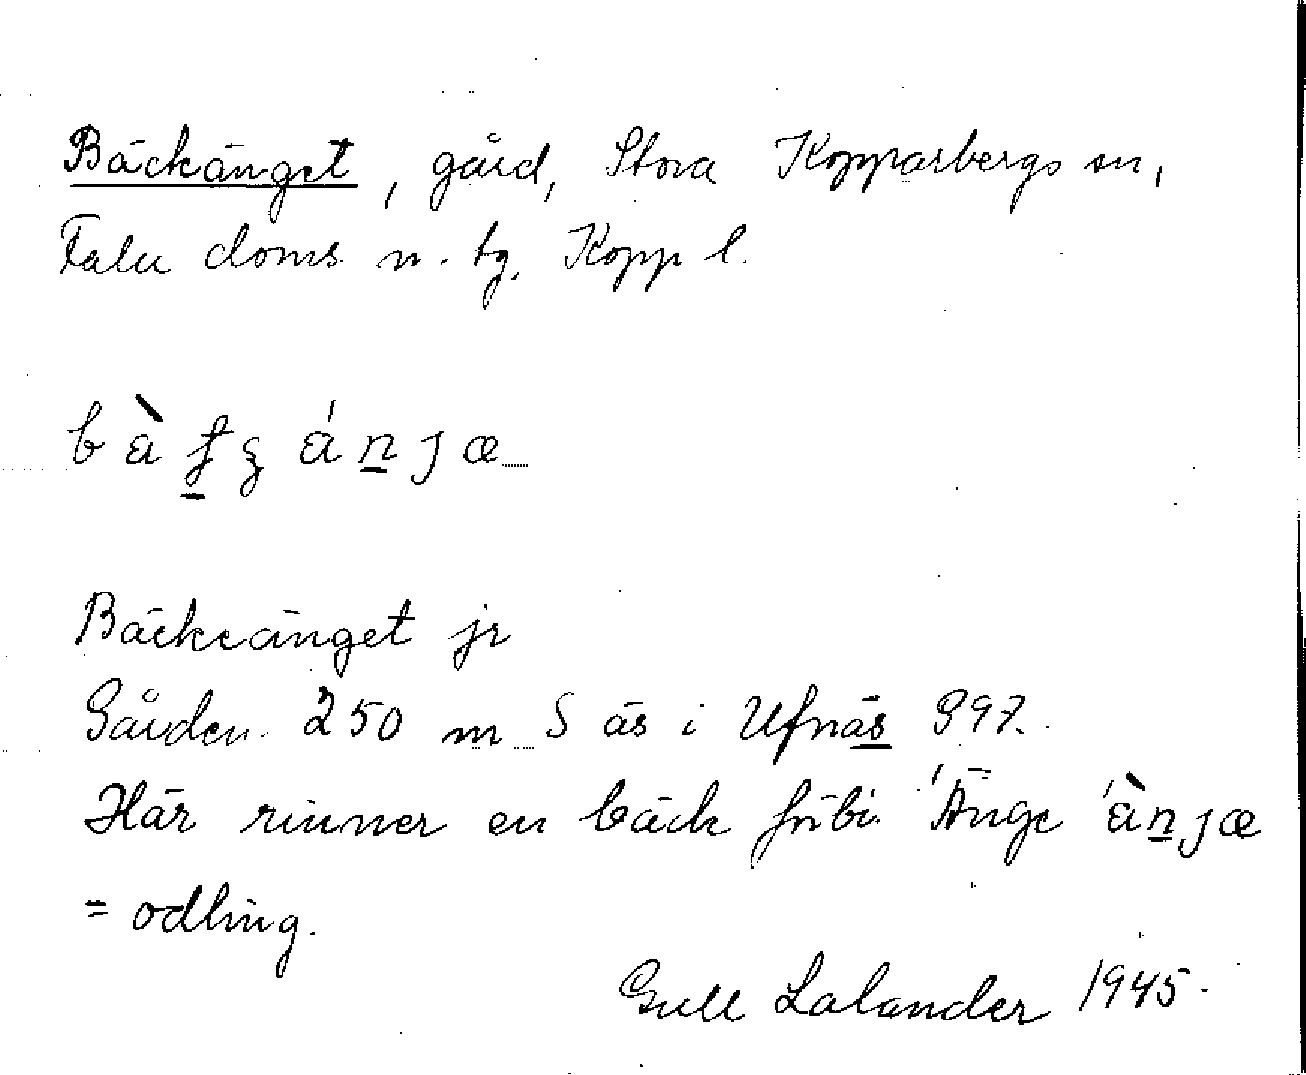 Bäckänget, gård, Stora Kopparbergs sn,
Falu doms. n. tg. Kopp l.
Bäckeänget jr
Gården 250 m S äs i Ufnäs 997.
Här rinner en bäck förbi. Änge
= odling.
Gull Lalander 1945.